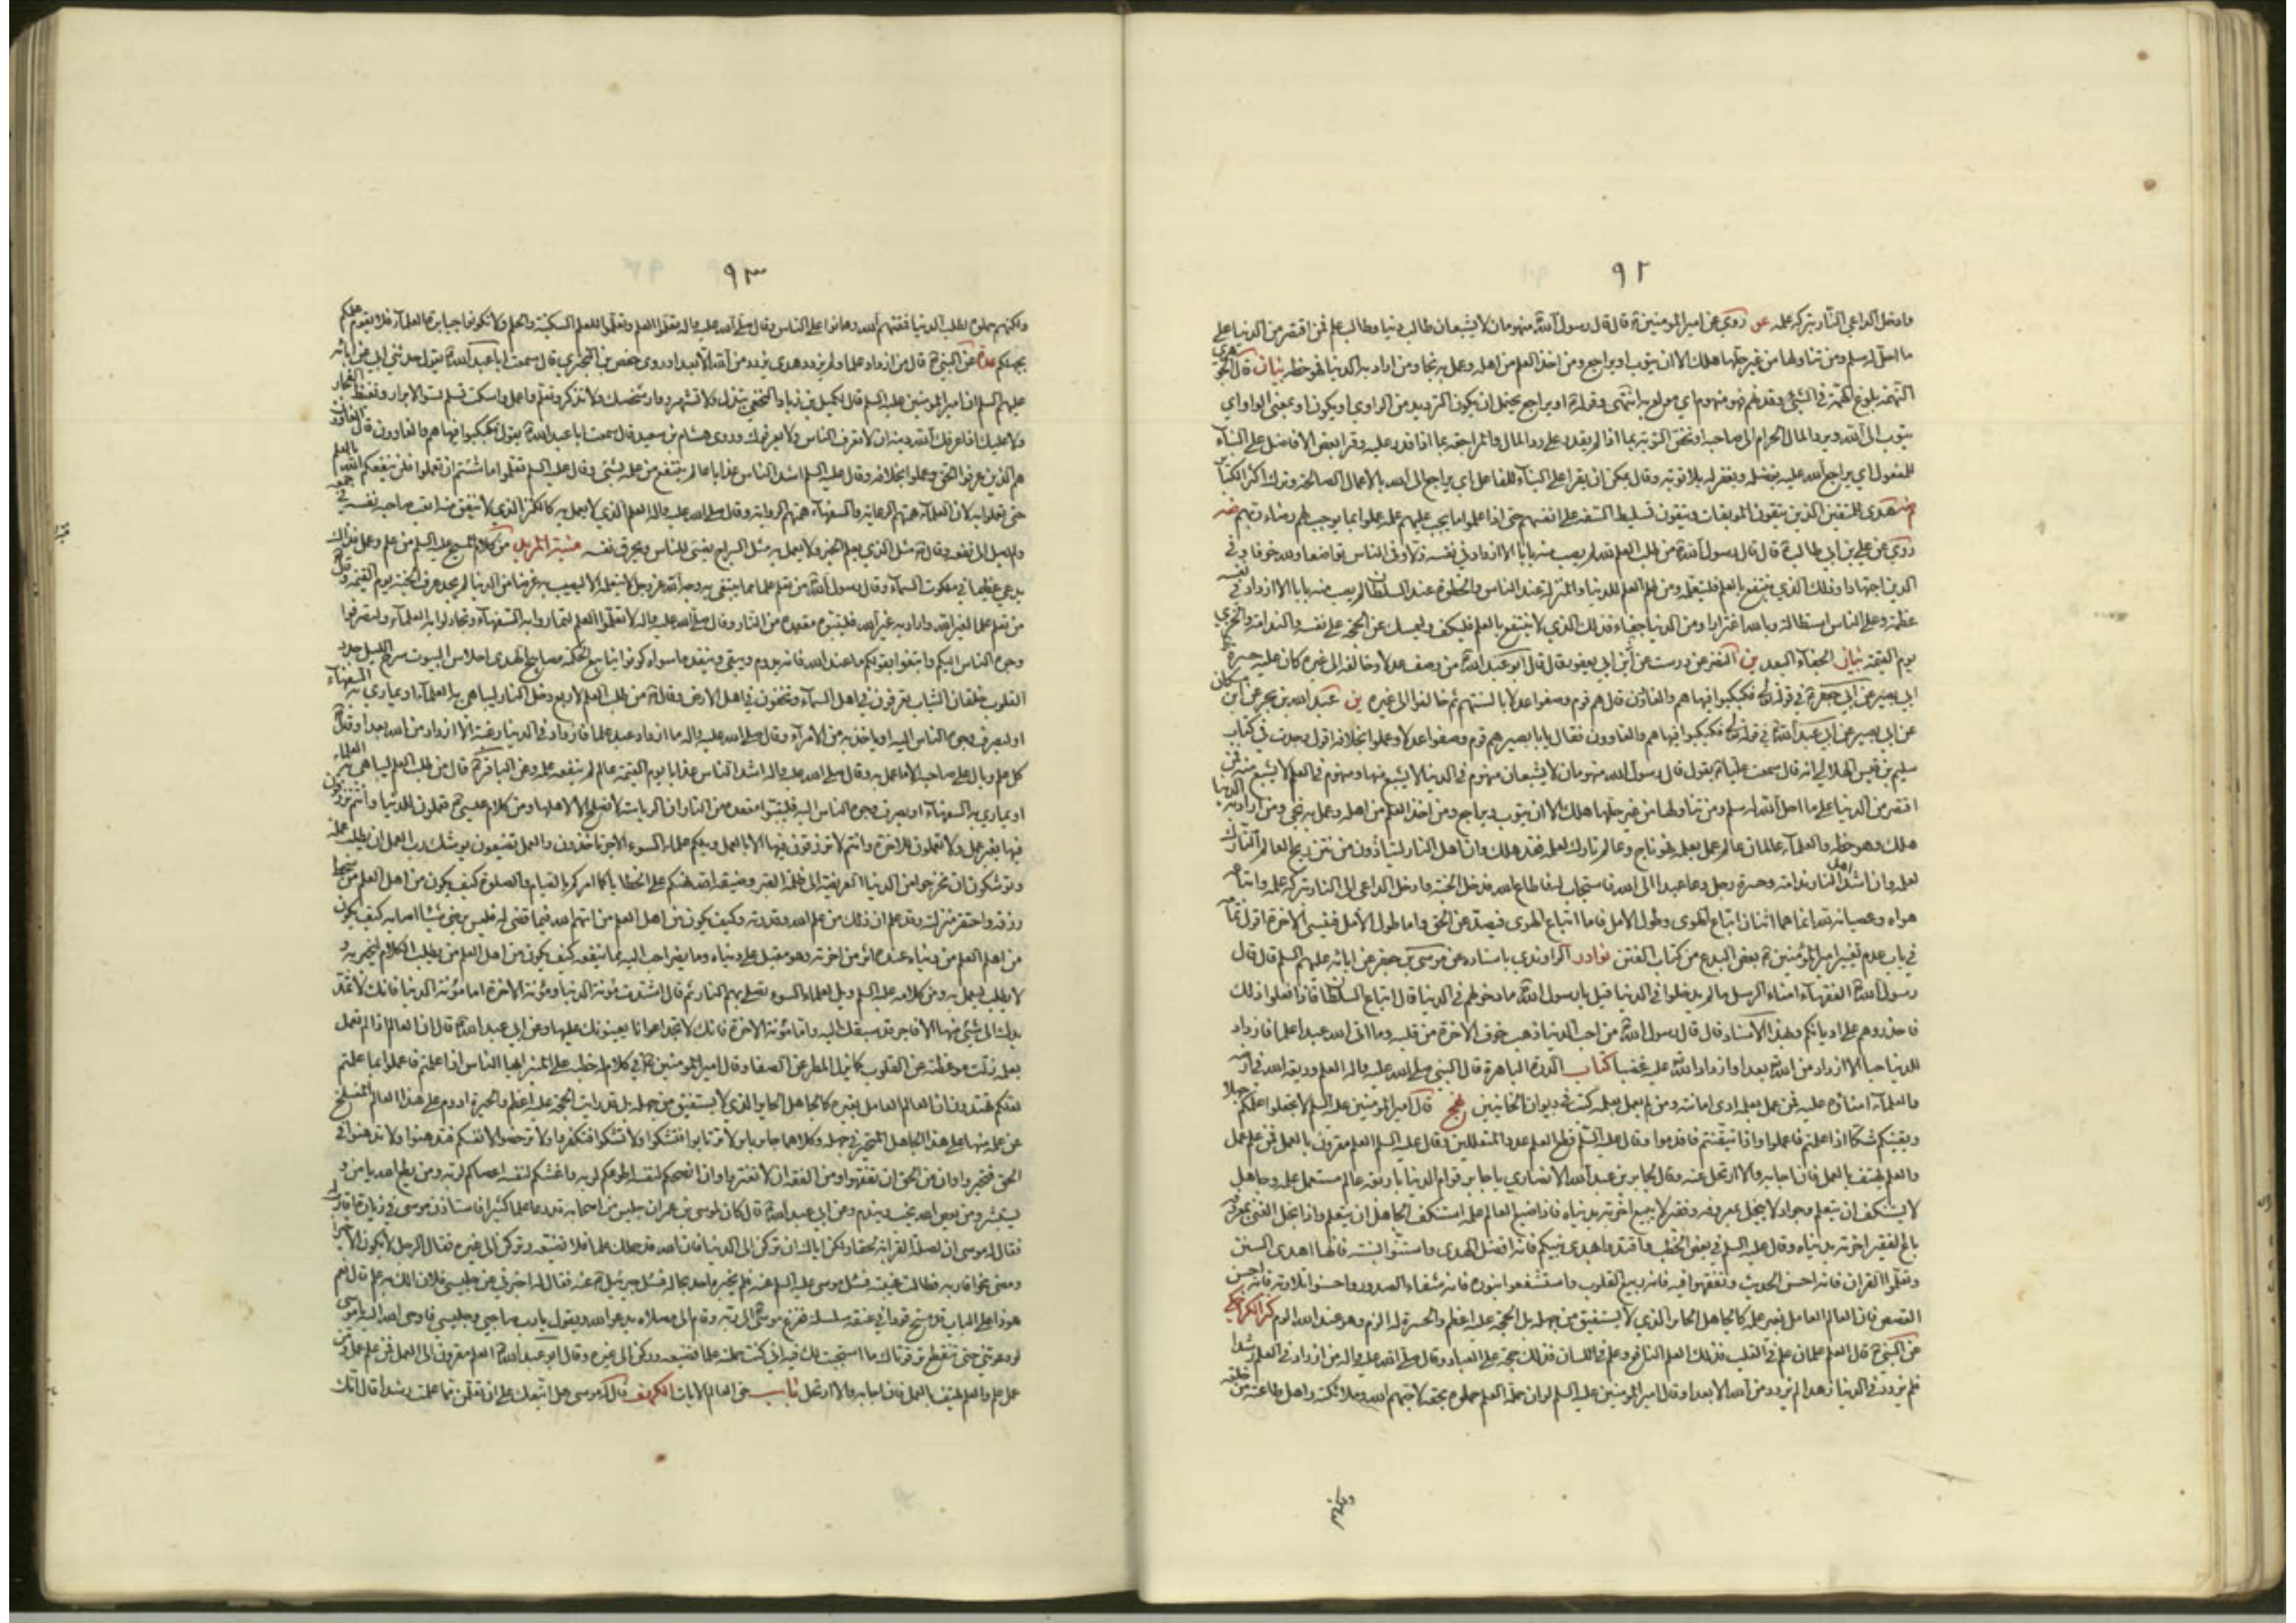 ٩٢
وادخل الداعي النار بتركه علمه عن روى عن امير المؤمنين ع قال قال رسول الله ص منهومان لا يشبعان طالب دنيا وطالب علم فمن اقتصر من الدنيا على
ما احل له سلم ومن تناولها من غير حلها هلك الا ان يتوب او يراجع ومن اخذ العلم من اهله وعمل به نجا ومن اراد به الدنيا فهو حظه بيان قال الجوهري
النهمة بلوغ الهمة في الشيء وقد نهم فهو منهوم اي مولع به انتهى وقوله ع او يراجع يحتمل ان يكون الترديد من الراوي او يكون او بمعنى الواو اي
يتوب الى الله ويرد المال الحرام الى صاحبه او تخص التوبة بما اذا لم يقدر على رد المال والمراجعة بما اذا قدر عليه وقرا بعض الافاضل على البناء
للمفعول اي يراجع الله عليه بفضله ويغفر له بلا توبة وقال يمكن ان يقرا على البناء للفاعل اي يراجع الى الله بالاعمال الصالحة وترك اكثر الكبائر
هدى للمتقين الذين يتقون الموبقات ويتقون تسليط السفه على انفسهم حتى اذا علموا ما يجب عليهم علمه عملوا بما يوجب لهم رضاء ربهم ضه
روى عن علي بن ابي طالب ع قال قال رسول الله ص من طلب العلم لله لم يصب منه بابا الا ازداد في نفسه ذلا وفي الناس تواضعا ولله خوفا وفي
الدين اجتهادا وذلك الذي ينتفع بالعلم فليتعلمه ومن طلب العلم للدنيا والمنزلة عند الناس والحظوة عند السلطان لم يصب منه بابا الا ازداد في نفسه
عظمة وعلى الناس استطالة وبالله اغترارا ومن الدنيا جفاء فذلك الذي لا ينتفع بالعلم فليكف وليمسك عن الحجة على نفسه والندامة والخزي
يوم القيمة بيان الجفاء البعد ين النضر عن درست عن ابن ابي يعفور قال قال ابو عبد الله ع من وصف عدلا وخالفه الى غيره كان عليه حسرة
ابي بصير عن ابي جعفر ع في قوله فكبكبوا فيها هم والغاون قال هم قوم وصفوا عدلا بالسنتهم ثم خالفوا الى غيره ين عبد الله بن بحر عن ابن مسكان
عن ابي بصير عن ابي عبد الله ع في قوله فكبكبوا فيها هم والغاوون فقال يابا بصير هم قوم وصفوا عدلا وعملوا بخلافه اقول وجدت في كتاب
سليم بن قيس الهلالي انه قال سمعت عليا ع يقول قال رسول الله منهومان لا يشبعان منهوم في الدنيا لا يشبع منها ومنهوم في العلم لا يشبع منه فمن
اقتصر من الدنيا على ما احل الله له سلم ومن تناولها من غير حلها هلك الا ان يتوب ويراجع ومن اخذ العلم من اهله وعمل به نجى ومن اراد به الدنيا
هلك وهو حظه والعلماء عالمان عالم عمل بعلمه فهو ناج وعالم تارك لعلمه فقد هلك وان اهل النار ليتأذون من نتن ريح العالم التارك
لعلمه وان اشد اهل النار ندامة وحسرة رجل دعا عبدا الى الله فاستجاب له فاطاع الله فدخل الجنة وادخل الداعي الى النار بتركه علمه واتباعه
هواه وعصيانه لله انما هما اثنان اتباع الهوى وطول الامل فاما اتباع الهوى فيصد عن الحق واما طول الامل فينسى الاخرة اقول تمامه
في باب علة عدم تغيير امير المؤمنين ع بعض البدع من كتاب الفتن نوادر الراوندي باسناده عن موسى بن جعفر عن ابائه عليهم السلم قال قال
رسول الله ص الفقهاء امناء الرسل ما لم يدخلوا في الدنيا قيل يا رسول الله ص ما دخولهم في الدنيا قال اتباع السلطان فاذا فعلوا ذلك
فاحذروهم على اديانكم وبهذا الاسناد قال قال رسول الله ص من احب الدنيا ذهب خوف الاخرة من قلبه وما اتى الله عبدا علما فازداد
للدنيا حبا الا ازداد من الله بعدا وازداد الله عليه غضبا كتاب الدرة الباهرة قال النبي صلى الله عليه واله العلم وديعة الله في ارضه
والعلماء امناؤه عليه فمن عمل بعلمه ادى امانته ومن لم يعمل بعلمه كتب في ديوان الخائنين نهج قال امير المؤمنين عليه السلم لا تجعلوا علمكم جهلا
ويقينكم شكا اذا علمتم فاعملوا واذا تيقنتم فاقدموا وقال عليه السلم قطع العلم عذر المتعللين وقال عليه السلم العلم مقرون بالعمل فمن علم عمل
والعلم يهتف بالعمل فان اجابه والا ارتحل عنه وقال لجابر بن عبد الله الانصاري يا جابر قوام الدنيا باربعة عالم مستعمل علمه وجاهل
لا يستنكف ان يتعلم وجواد لا يبخل بمعروفه وفقير لا يبيع اخرته بدنياه فاذا ضيع العالم علمه استنكف الجاهل ان يتعلم واذا بخل الغني بمعروفه
باع الفقير اخرته بدنياه وقال عليه السلم في بعض الخطب واقتدوا بهدى نبيكم فانه افضل الهدى واستنوا بسنته فانها اهدى السنن
وتعلموا القران فانه احسن الحديث وتفقهوا فيه فانه ربيع القلوب واستشفعوا بنوره فانه شفاء الصدور واحسنوا تلاوته فانه احسن
القصص فان العالم العامل بغير علمه كالجاهل الحائر الذي لا يستفيق من جهله بل الحجة عليه اعظم والحسرة له الزم وهو عند الله الوم كنز الكراجكي
عن النبي ص قال العلم علمان علم في القلب فذلك العلم النافع وعلم في اللسان فذلك حجة على العباد وقال صلى الله عليه واله من ازداد في العلم رشدا
فلم يزدد في الدنيا زهدا لم يزدد من الله الا بعدا وقال امير المؤمنين عليه السلم لو ان حملة العلم حملوه بحقه لاحبهم الله وملائكته واهل طاعته من خلقه
٩٣
ولكنهم حملوه لطلب الدنيا فمقتهم الله وهانوا على الناس وقال صلى الله عليه واله تعلموا العلم وتعلموا للعلم السكينة والحلم ولا تكونوا جبابرة العلماء فلا يقوم علمكم
بجهلكم عدة عن النبي ص قال من ازداد علما ولم يزدد هدى لم يزدد من الله الا بعدا وروى حفص بن البختري قال سمعت ابا عبد الله ع يقول حدثني ابي عن ابائه
عليهم السلم ان امير المؤمنين عليه السلم قال لكميل بن زياد النخعي تبذل ولا تشهر ووار شخصك ولا تذكر وتعلم واعمل واسكت تسلم تسر الابرار وتغيظ الفجار
ولا عليك اذا عرفك الله دينه ان لا تعرف الناس ولا يعرفوك وروى هشام بن سعيد قال سمعت ابا عبد الله ع يقول فكبكبوا فيها هم والغاوون قال الغاوون
هم الذين عرفوا الحق وعملوا بخلافه وقال عليه السلم اشد الناس عذابا عالم لا ينتفع من علمه بشيء وقال عليه السلم تعلموا ما شئتم ان تعلموا فلن ينفعكم الله بالعلم
حتى تعملوا به لان العلماء همتهم الرعاية والسفهاء همتهم الرواية وقال صلى الله عليه واله العلم الذي لا يعمل به كالكنز الذي لا ينفق منه اتعب صاحبه نفسه في جمعه
ولم يصل الى نفعه وقال ص مثل الذي يعلم الخير ولا يعمل به مثل السراج يضيء للناس ويحرق نفسه منية المريد من كلام المسيح عليه السلم من علم وعمل فذاك
يدعى عظيما في ملكوت السماء وقال رسول الله ص من تعلم علما مما يبتغى به وجه الله عز وجل لا يتعلمه الا ليصيب به عرضا من الدنيا لم يجد عرف الجنة يوم القيمة وقال ص
من تعلم علما لغير الله واراد به غير الله فليتبوء مقعده من النار وقال صلى الله عليه واله لا تعلموا العلم لتماروا به السفهاء وتجادلوا به العلماء ولتصرفوا
وجوه الناس اليكم وابتغوا بقولكم ما عند الله فانه يدوم ويبقى وينفد ما سواه كونوا ينابيع الحكمة مصابيح الهدى احلاس البيوت سرج الليل جدد
القلوب خلقان الثياب تعرفون في اهل السماء وتخفون في اهل الارض وقال ص من طلب العلم لاربع دخل النار ليباهي به العلماء او يماري به السفهاء
او ليصرف وجوه الناس اليه او ياخذ به من الامراء وقال صلى الله عليه واله ما ازداد عبد علما فازداد في الدنيا رغبة الا ازداد من الله بعدا وقال ص
كل علم وبال على صاحبه الا ما عمل به وقال صلى الله عليه واله اشد الناس عذابا يوم القيمة عالم لم ينفعه علمه وعن الباقر ع قال من طلب العلم ليباهي به العلماء
او يماري به السفهاء او يصرف وجوه الناس اليه فليتبوء مقعده من النار ان الرياسة لا تصلح الا لاهلها ومن كلام عيسى ع تعملون للدنيا وانتم ترزقون
فيها بغير عمل ولا تعملون للاخرة وانتم لا ترزقون فيها الا بالعمل ويلكم علماء السوء الاجر تاخذون والعمل تضيعون يوشك رب العمل ان يطلب عمله
وتوشكون ان تخرجوا من الدنيا العريضة الى ظلمة القبر وضيقه الله نهاكم عن الخطايا كما امركم بالصيام والصلوة كيف يكون من اهل العلم من سخط
رزقه واحتقر منزلته وقد علم ان ذلك من علم الله وقدرته وكيف يكون من اهل العلم من اتهم الله فيما قضى له فليس يرضى شيئا اصابه كيف يكون
من اهل العلم من دنياه عنده اثر من اخرته وهو مقبل على دنياه وما يضره احب اليه مما ينفعه كيف يكون من اهل العلم من يطلب الكلام ليخبر به و
لا يطلب ليعمل به ومن كلامه عليه السلم ويل لعلماء السوء تصلى بهم النار ثم قال اشتدت مؤنة الدنيا ومؤنة الاخرة اما مؤنة الدنيا فانك لا تمد
يدك الى شيء منها الا فاجر قد سبقك اليه واما مؤنة الاخرة فانك لا تجد اعوانا يعينونك عليها وعن ابي عبد الله ع قال ان العالم اذا لم يعمل
بعلمه زلت موعظته عن القلوب كما يزل المطر عن الصفا وقال امير المؤمنين ع في كلام له خطبه على المنبر ايها الناس اذا علمتم فاعملوا بما علمتم
لعلكم تهتدون ان العالم العامل بغيره كالجاهل الحائر الذي لا يستفيق من جهله بل قد رايت الحجة عليه اعظم والحسرة ادوم على هذا العالم المنسلخ
عن علمه منها على هذا الجاهل المتحير في جهله وكلاهما حائر بائر لا ترتابوا فتشكوا ولا تشكوا فتكفروا ولا ترخصوا لانفسكم فتدهنوا ولا تدهنوا في
الحق فتخسروا وان من الحق ان تفقهوا ومن الفقه ان لا تغتروا وان انصحكم لنفسه اطوعكم لربه واغشكم لنفسه اعصاكم لربه ومن يطع الله يامن و
يستبشر ومن يعص الله يخب ويندم وعن ابي عبد الله ع قال كان لموسى بن عمران جليس من اصحابه قد وعى علما كثيرا فاستاذن موسى في زيارة اقارب له
فقال له موسى ان لصلة القرابة لحقا ولكن اياك ان تركن الى الدنيا فان الله قد حملك علما فلا تضيعه وتركن الى غيره فقال الرجل لا يكون الا خيرا
ومضى نحو اقاربه فطالت غيبته فسئل موسى عليه السلم عنه فلم يخبره احد بحاله فسئل جبرئيل ع عنه فقال له اخبرني عن جليسي فلان الك به علم قال نعم
هو ذا على الباب قد مسخ قردا في عنقه سلسلة ففزع موسى ع الى ربه وقام الى مصلاه يدعو الله ويقول يا رب صاحبي وجليسي فاوحى الله اليه يا موسى
لو دعوتني حتى تنقطع ترقوتاك ما استجبت لك فيه اني كنت حملته علما فضيعه وركن الى غيره وقال ابو عبد الله ع العلم مقرون الى العمل فمن علم عمل ومن
عمل علم والعلم يهتف بالعمل فان اجابه والا ارتحل باب حق العالم الايات الكهف قال له موسى هل اتبعك على ان تعلمن مما علمت رشدا قال انك
ولكنهم